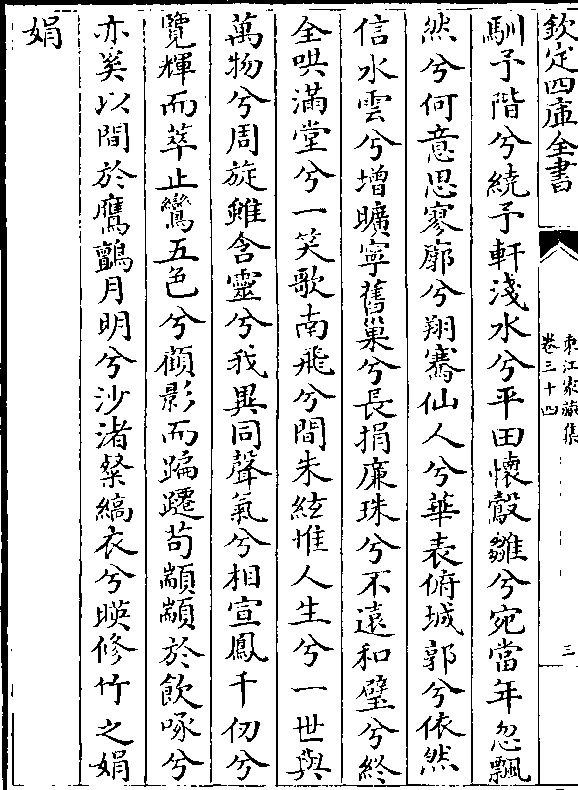 欽定四庫全書
東江家藏集
卷三十四
三
馴予階兮繞予軒淺水兮平田懷鷇雛兮宛當年忽飄
然兮何意思寥廓兮翔騫仙人兮華表俯城郭兮依然
信水雲兮增曠寧舊巢兮長捐廉珠兮不遠和璧兮終
全哄滿堂兮一笑歌南飛兮間朱絃惟人生兮一世與
萬物兮周旋雖含靈兮我異同聲氣兮相宣鳳千仞兮
覽輝而萃止鸞五色兮顧影而蹁躚苟顓顓於飲啄兮
亦奚以間於鷹鸇月明兮沙渚粲縞衣兮暎修竹之娟
娟